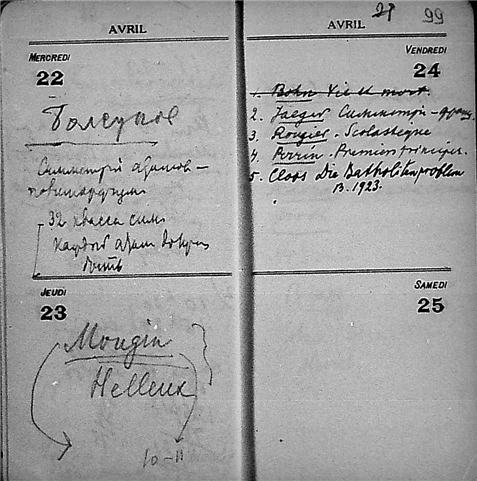 AVRIL
MERCREDI
22
Симметрия атомов —
32 класса симм
каждый атом
быть
JEUDI
23
Mougin
Helleux
10-11
AVRIL
99
VENDREDI
24
1. Bohn Vie et mort.
2. Jaeger Симметрия -
3. Rougier. Scolastique
4. Perrin. Premiers principes.
5. Cloos Die Batholitenproblem
B. 1923.
SAMEDI
25